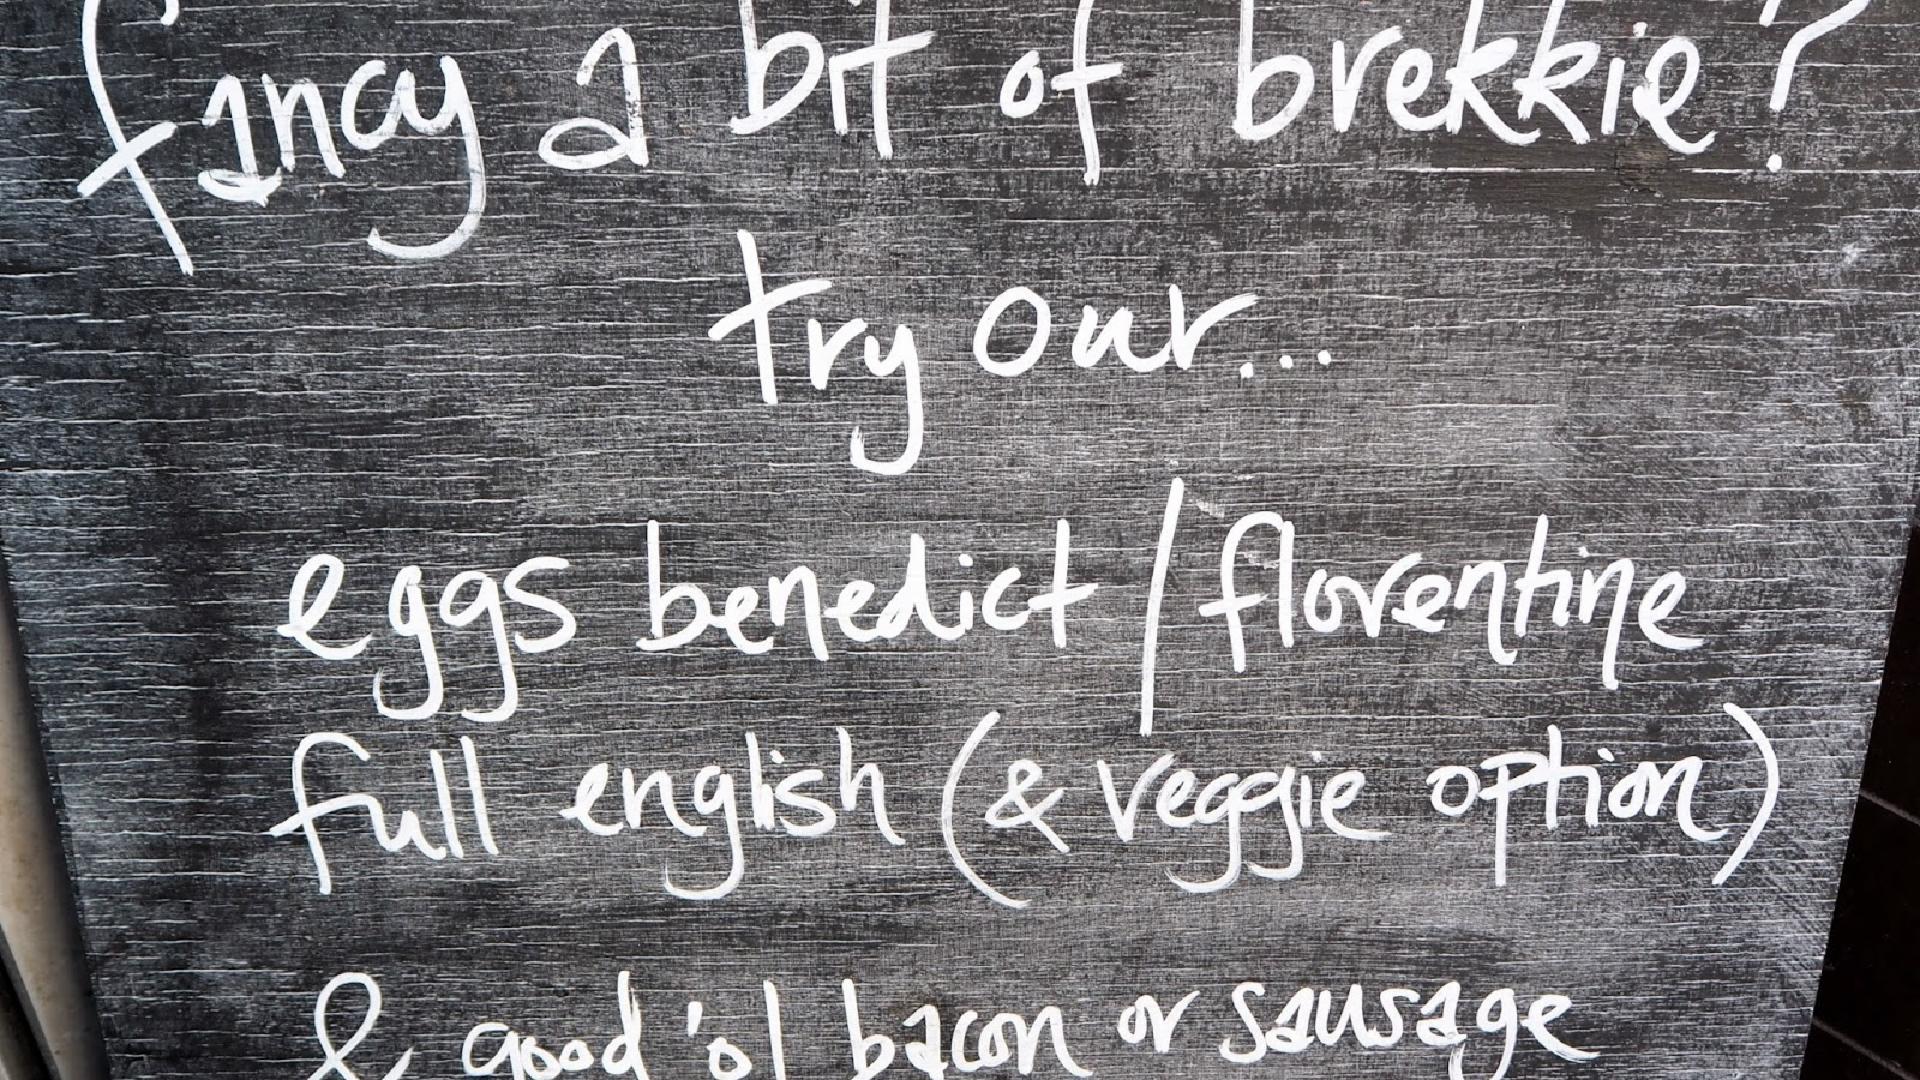 fancy a bit of brekkie?
try our...
eggs benedict / florentine
full english (& veggie option)
& good 'ol bacon or sausage